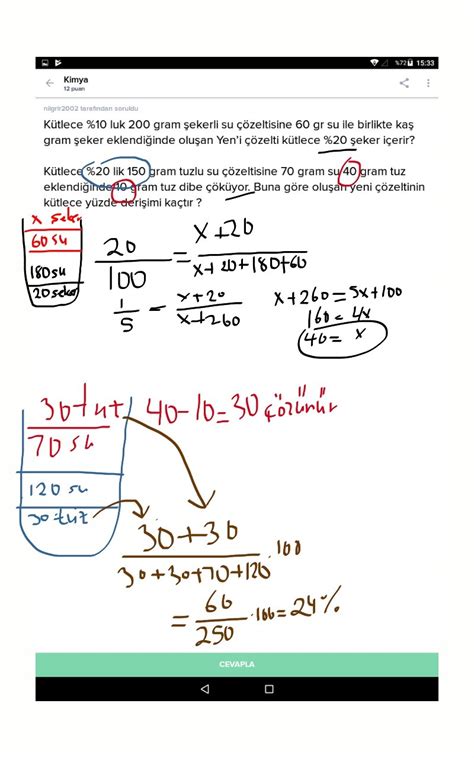 %72 15:33
Kimya
12 puan
nilgrir2002 tarafından soruldu
Kütlece %10 luk 200 gram şekerli su çözeltisine 60 gr su ile birlikte kaş
gram şeker eklendiğinde oluşan Yen'i çözelti kütlece %20 şeker içerir?
Kütlece %20 lik 150 gram tuzlu su çözeltisine 70 gram su 40 gram tuz
eklendiğinde 10 gram tuz dibe çöküyor. Buna göre oluşan yeni çözeltinin
kütlece yüzde derişimi kaçtır ?
x şeker
60 su
180 su
20 şeker
20/100 = x+20/x+20+180+60
1/5 = x+20/x+260
x+260=5x+100
160=4x
40=x
30 tuz 40-10=30 çözünür
70 su
120 su
30 tuz
30+30/30+30+70+120 · 100
= 60/250 · 100 = 24%
CEVAPLA